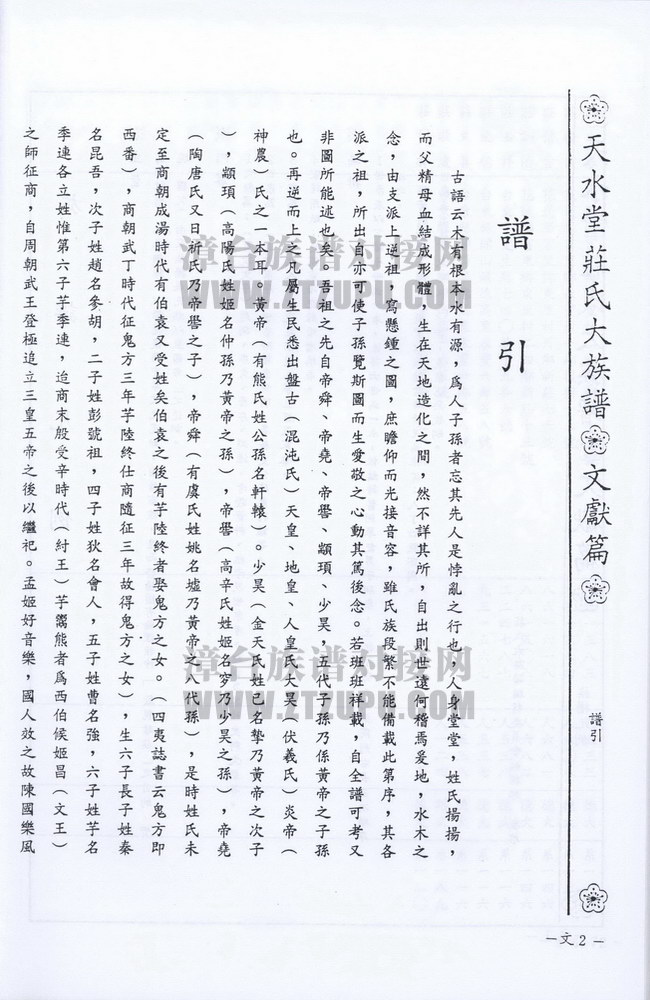 天水堂莊氏大族譜 文獻篇
譜引
－文2－
譜引
古語云木有根本水有源，爲人子孫者忘其先人是悖亂之行也，人身堂堂，姓氏揚揚，
而父精母血結成形體，生在天地造化之間，然不詳其所，自出則世遠何稽焉爰地，水木之
念，由支派上逆祖，寫懸鍾之圖，庶瞻仰而光接音容，雖氏族段繁不能備載此第序，其各
派之祖，所出自亦可使子孫覽斯圖而生愛敬之心動其篤後念。若班班祥載，自全譜可考又
非圖所能述也矣。吾祖之先自帝舜、帝堯、帝嚳、顓頊、少昊，五代子孫乃係黃帝之子孫
也。再逆而上之凡屬生民悉出盤古（混沌氏）天皇、地皇、人皇氏大昊（伏羲氏）炎帝（
神農）氏之一本耳。黃帝（有熊氏姓公孫名軒轅）。少昊（金天氏姓己名摯乃黃帝之次子
），顓頊（高陽氏姓姬名仲孫乃黃帝之孫），帝嚳（高辛氏姓姬名穷乃少昊之孫），帝堯
（陶唐氏又日祈氏乃帝嚳之子），帝舜（有虞氏姓姚名墟乃黃帝之八代孫），是時姓氏未
定至商朝成湯時代有伯袁又受姓矣伯袁之後有芊陸終者娶鬼方之女。（四夷誌書云鬼方即
西番），商朝武丁時代征鬼方三年芊陸終仕商隨征三年故得鬼方之女），生六子長子姓秦
名昆吾，次子姓趙名參胡，二子姓彭號祖，四子姓狄名會人，五子姓曹名強，六子姓芊名
季連各立姓惟第六子芊季連，迨商末殷受辛時代（紂王）芊鬻熊者爲西伯侯姬昌（文王）
之師征商，自周朝武王登極追立三皇五帝之後以繼祀。孟姬好音樂，國人效之故陳國樂風
漳台族谱对接网
WWW.ZTZUPU.COM
漳台族谱对接网
WWW.ZTZUPU.COM